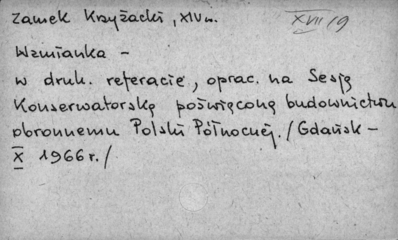 Zamek Krzyżacki, XIV w.
XVII/9
Wzmianka –
w druk. referacie, oprac. na Sesję
Konserwatorską poświęconą budownictwu
obronnemu Polski Północnej. /Gdańsk –
X 1966 r./